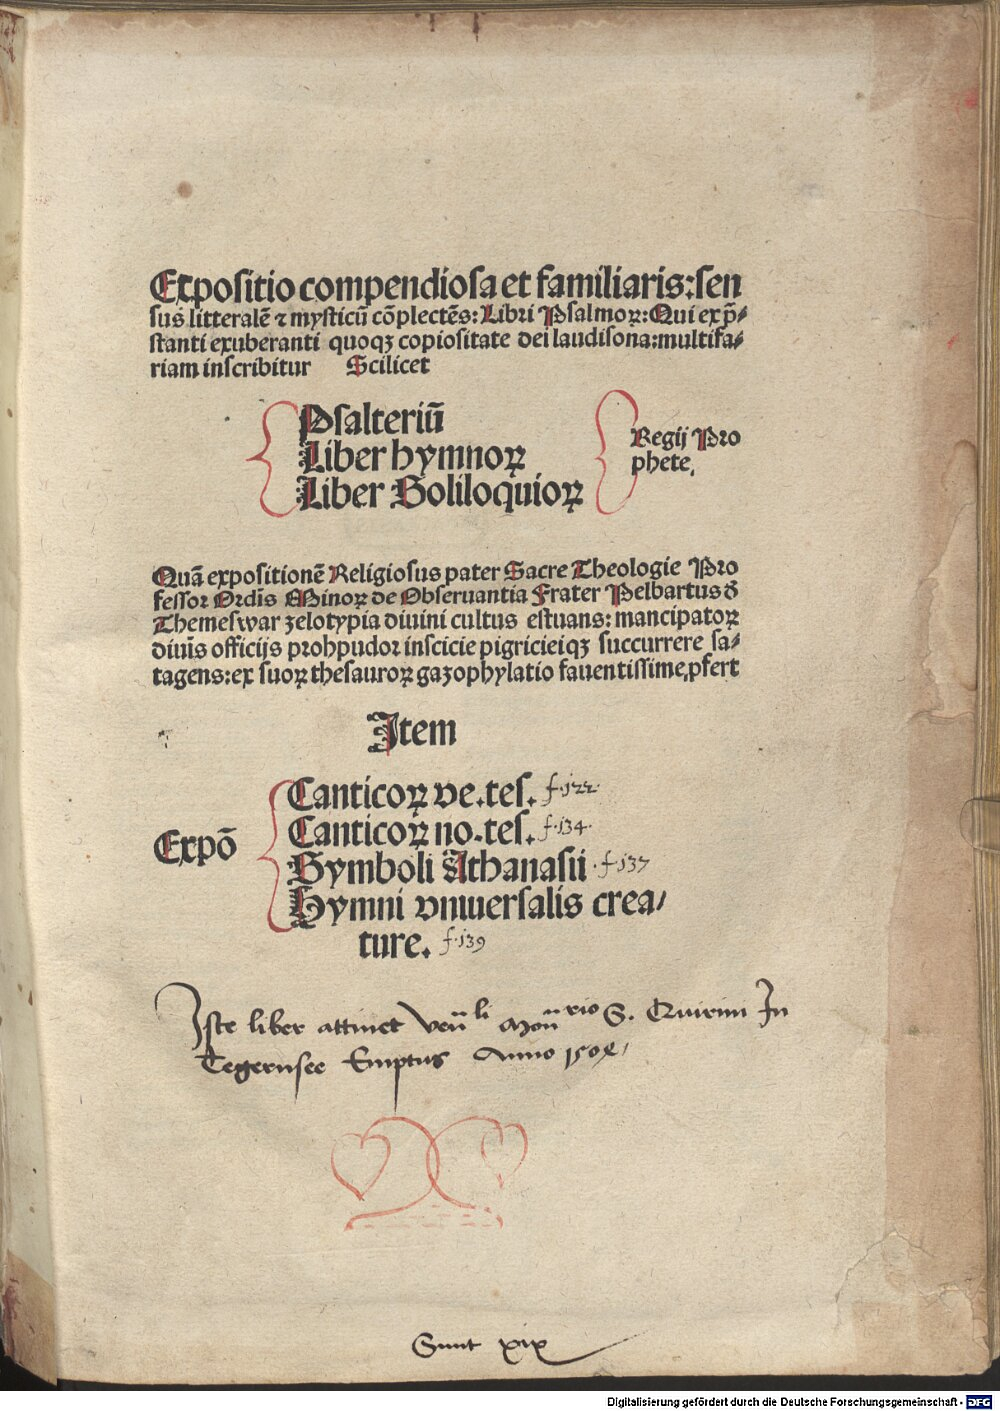 Expositio compendiosa et familiaris: sen
sus litteralē ⁊ mysticū cōplectēs: Libri Psalmoꝝ: Qui ex p̄-
stanti exuberanti quoqꝫ copiositate dei laudisona: multifa-
riam inscribitur Scilicet
Psalteriū
Liber hymnoꝝ
Liber Soliloquioꝝ
Regij Pro
phete.
Quā expositionē Religiosus pater Sacre Theologie Pro
fessor Ordīs Minoꝝ de Obseruantia Frater Pelbartus d̄
Themeswar zelotypia diuini cultus estuans: mancipatoꝝ
diuīs officijs prohpudor inscicie pigricieiqꝫ succurrere sa-
tagens: ex suoꝝ thesauroꝝ gazophylatio fauentissime ꝓfert
Item
Expō
Canticoꝝ ve. tes. f. 122.
Canticoꝝ no. tes. f. 134.
Symboli Athanasii f. 137
Hymni vniuersalis crea-
ture. f. 139
Iste liber attinet Ven̄li Mon̄rio S. Quirini In
Tegernsee Emptus Anno
Sunt xix
Digitalisierung gefördert durch die Deutsche Forschungsgemeinschaft - DFG